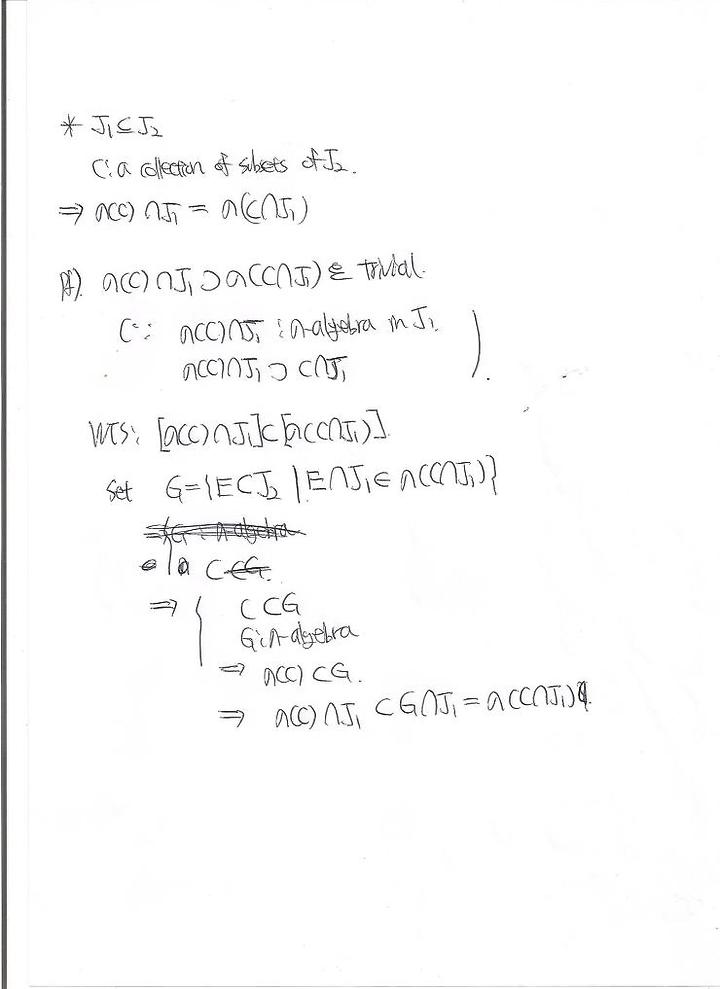 * J₁ ⊆ J₂
C : a collection of subsets of J₂.
⇒ σ(C) ∩ J₁ = σ(C∩J₁)
Pf). σ(C) ∩ J₁ ⊃ σ(C∩J₁) trivial.
(∵ σ(C)∩J₁ : σ-algebra in J₁.
σ(C)∩J₁ ⊃ C∩J₁ ).
WTS: [σ(C)∩J₁] ⊂ [σ(C∩J₁)].
Set G = {E⊂J₂ | E∩J₁ ∈ σ(C∩J₁)}
⇒ { C⊂G
G : σ-algebra
⇒ σ(C) ⊂ G.
⇒ σ(C) ∩ J₁ ⊂ G∩J₁ = σ(C∩J₁)